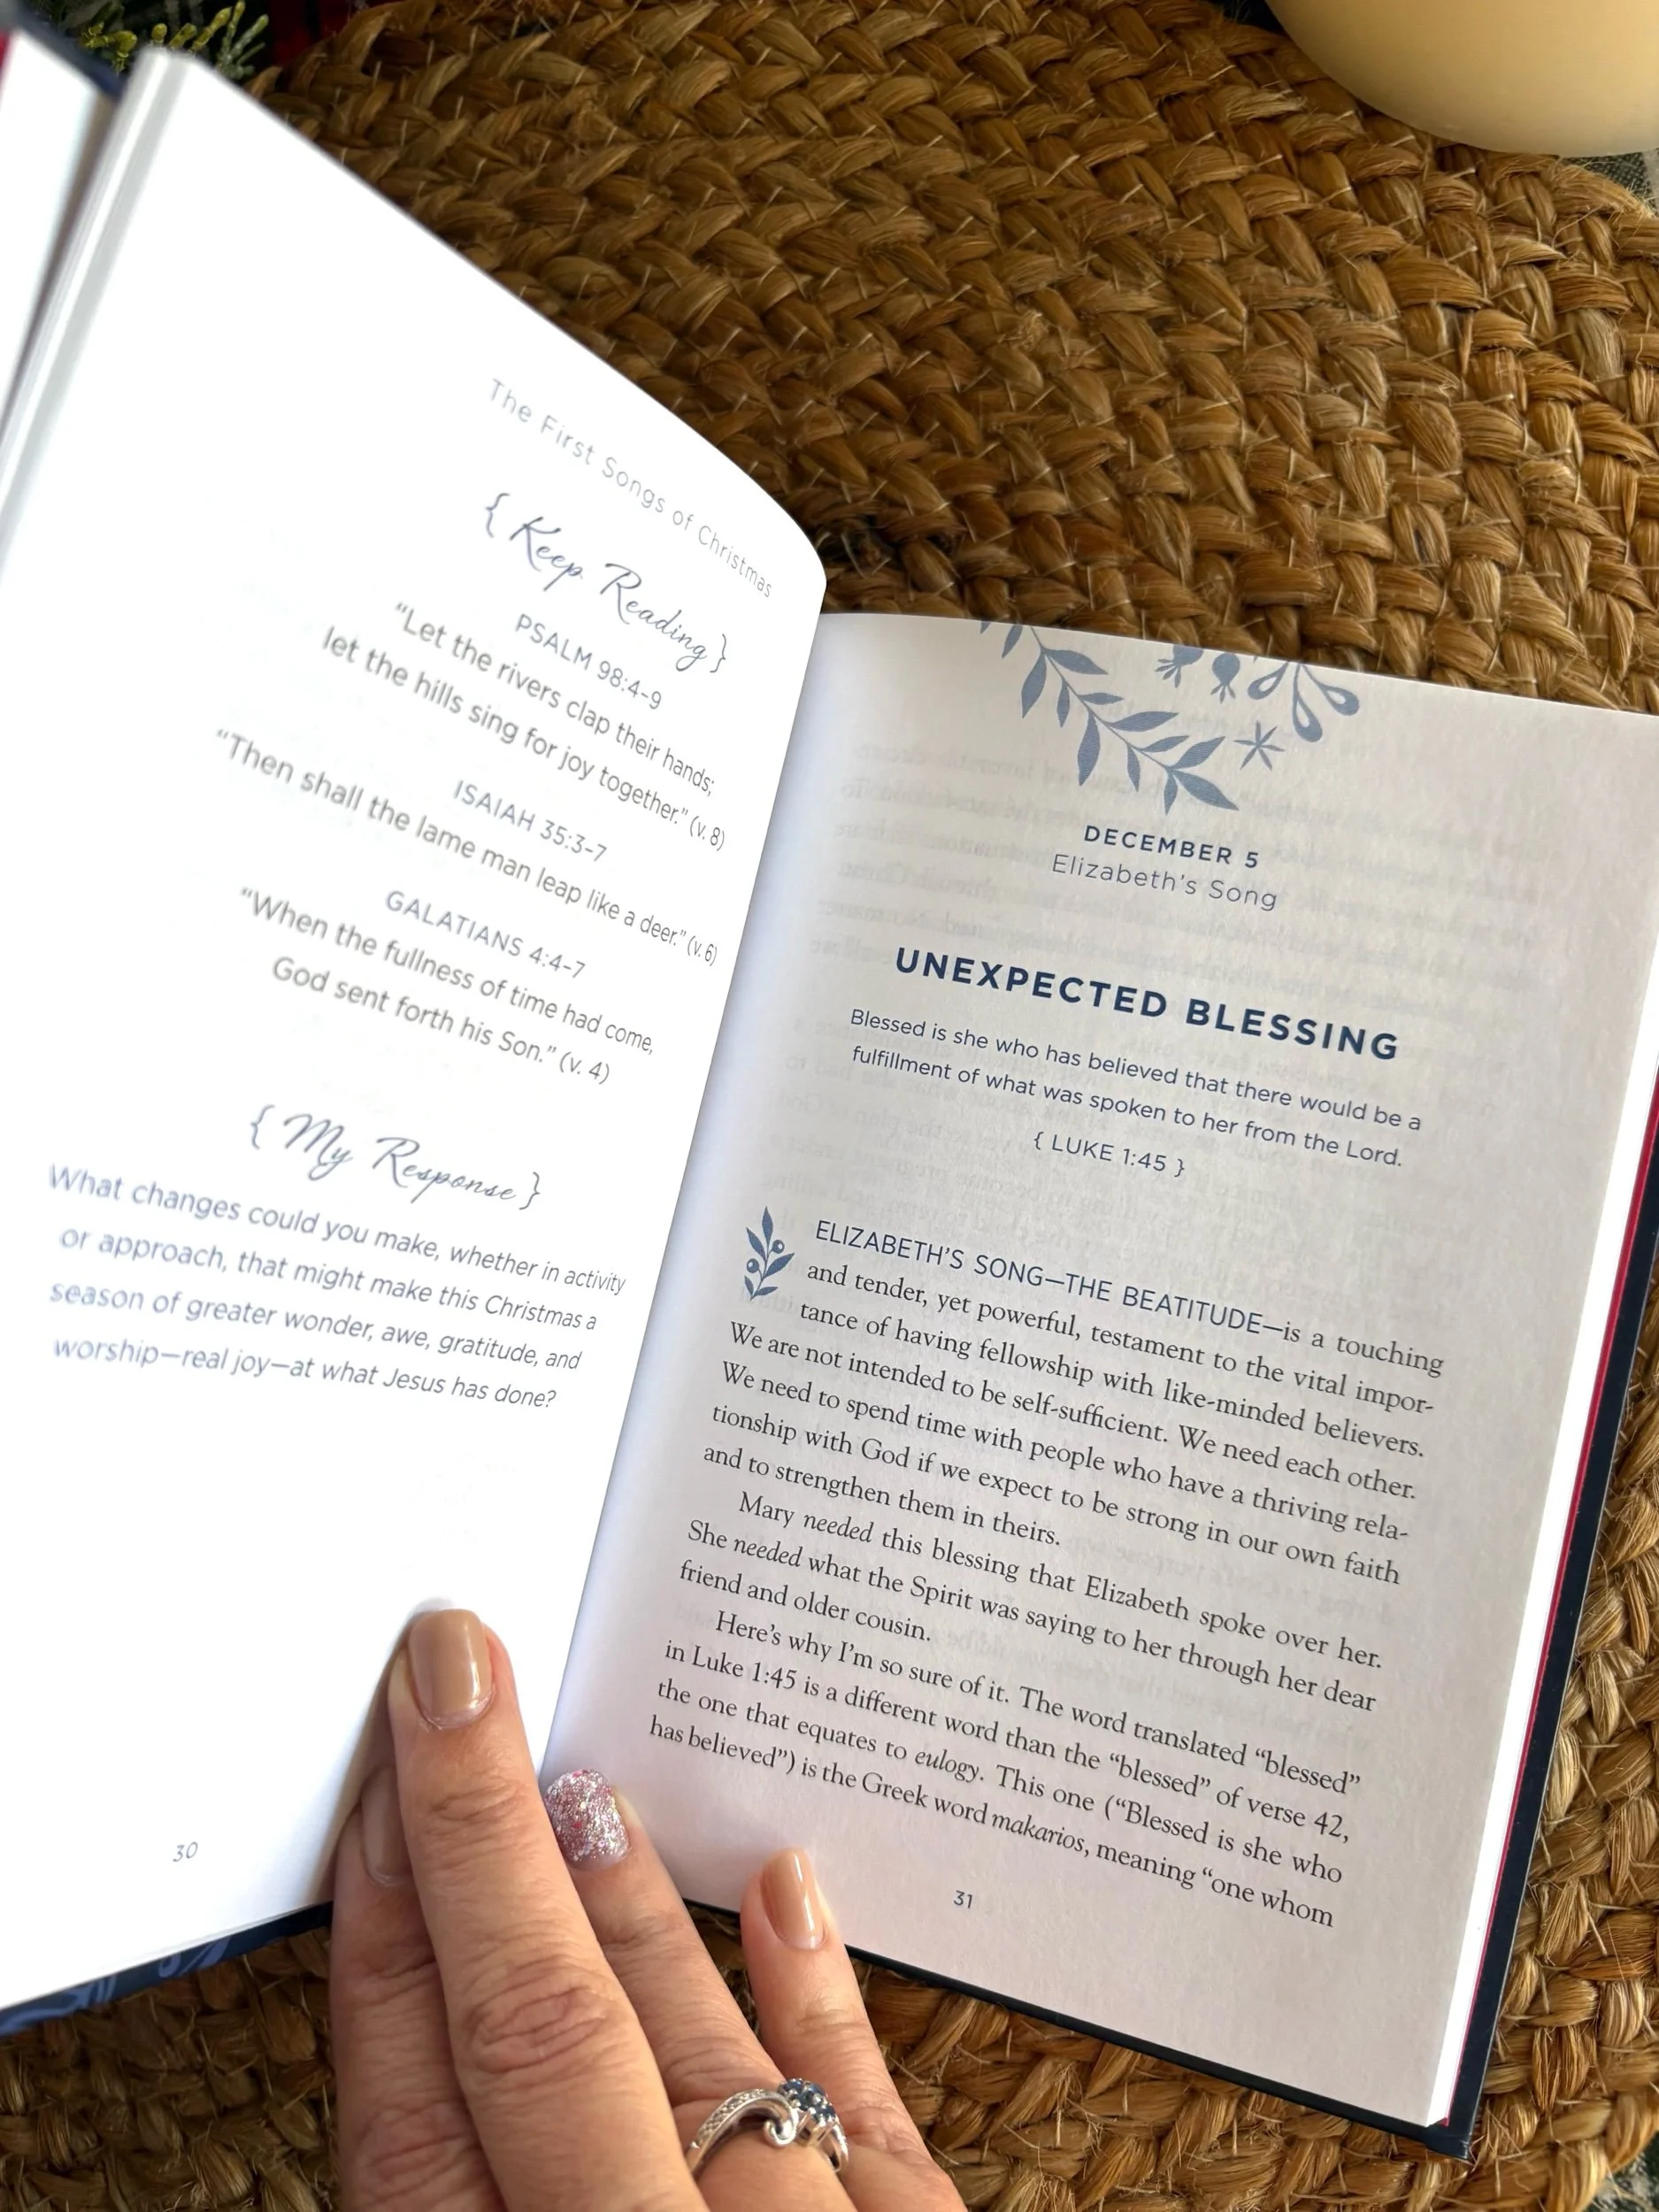 The First Songs of Christmas
{ Keep Reading }
PSALM 98:4–9
“Let the rivers clap their hands;
let the hills sing for joy together.” (v. 8)
ISAIAH 35:3–7
“Then shall the lame man leap like a deer.” (v. 6)
GALATIANS 4:4–7
“When the fullness of time had come,
God sent forth his Son.” (v. 4)
{ My Response }
What changes could you make, whether in activity
or approach, that might make this Christmas a
season of greater wonder, awe, gratitude, and
worship—real joy—at what Jesus has done?
30
DECEMBER 5
Elizabeth’s Song
UNEXPECTED BLESSING
Blessed is she who has believed that there would be a
fulfillment of what was spoken to her from the Lord.
{ LUKE 1:45 }
ELIZABETH’S SONG—THE BEATITUDE—is a touching
and tender, yet powerful, testament to the vital impor-
tance of having fellowship with like-minded believers.
We are not intended to be self-sufficient. We need each other.
We need to spend time with people who have a thriving rela-
tionship with God if we expect to be strong in our own faith
and to strengthen them in theirs.
Mary needed this blessing that Elizabeth spoke over her.
She needed what the Spirit was saying to her through her dear
friend and older cousin.
Here’s why I’m so sure of it. The word translated “blessed”
in Luke 1:45 is a different word than the “blessed” of verse 42,
the one that equates to eulogy. This one (“Blessed is she who
has believed”) is the Greek word makarios, meaning “one whom
31